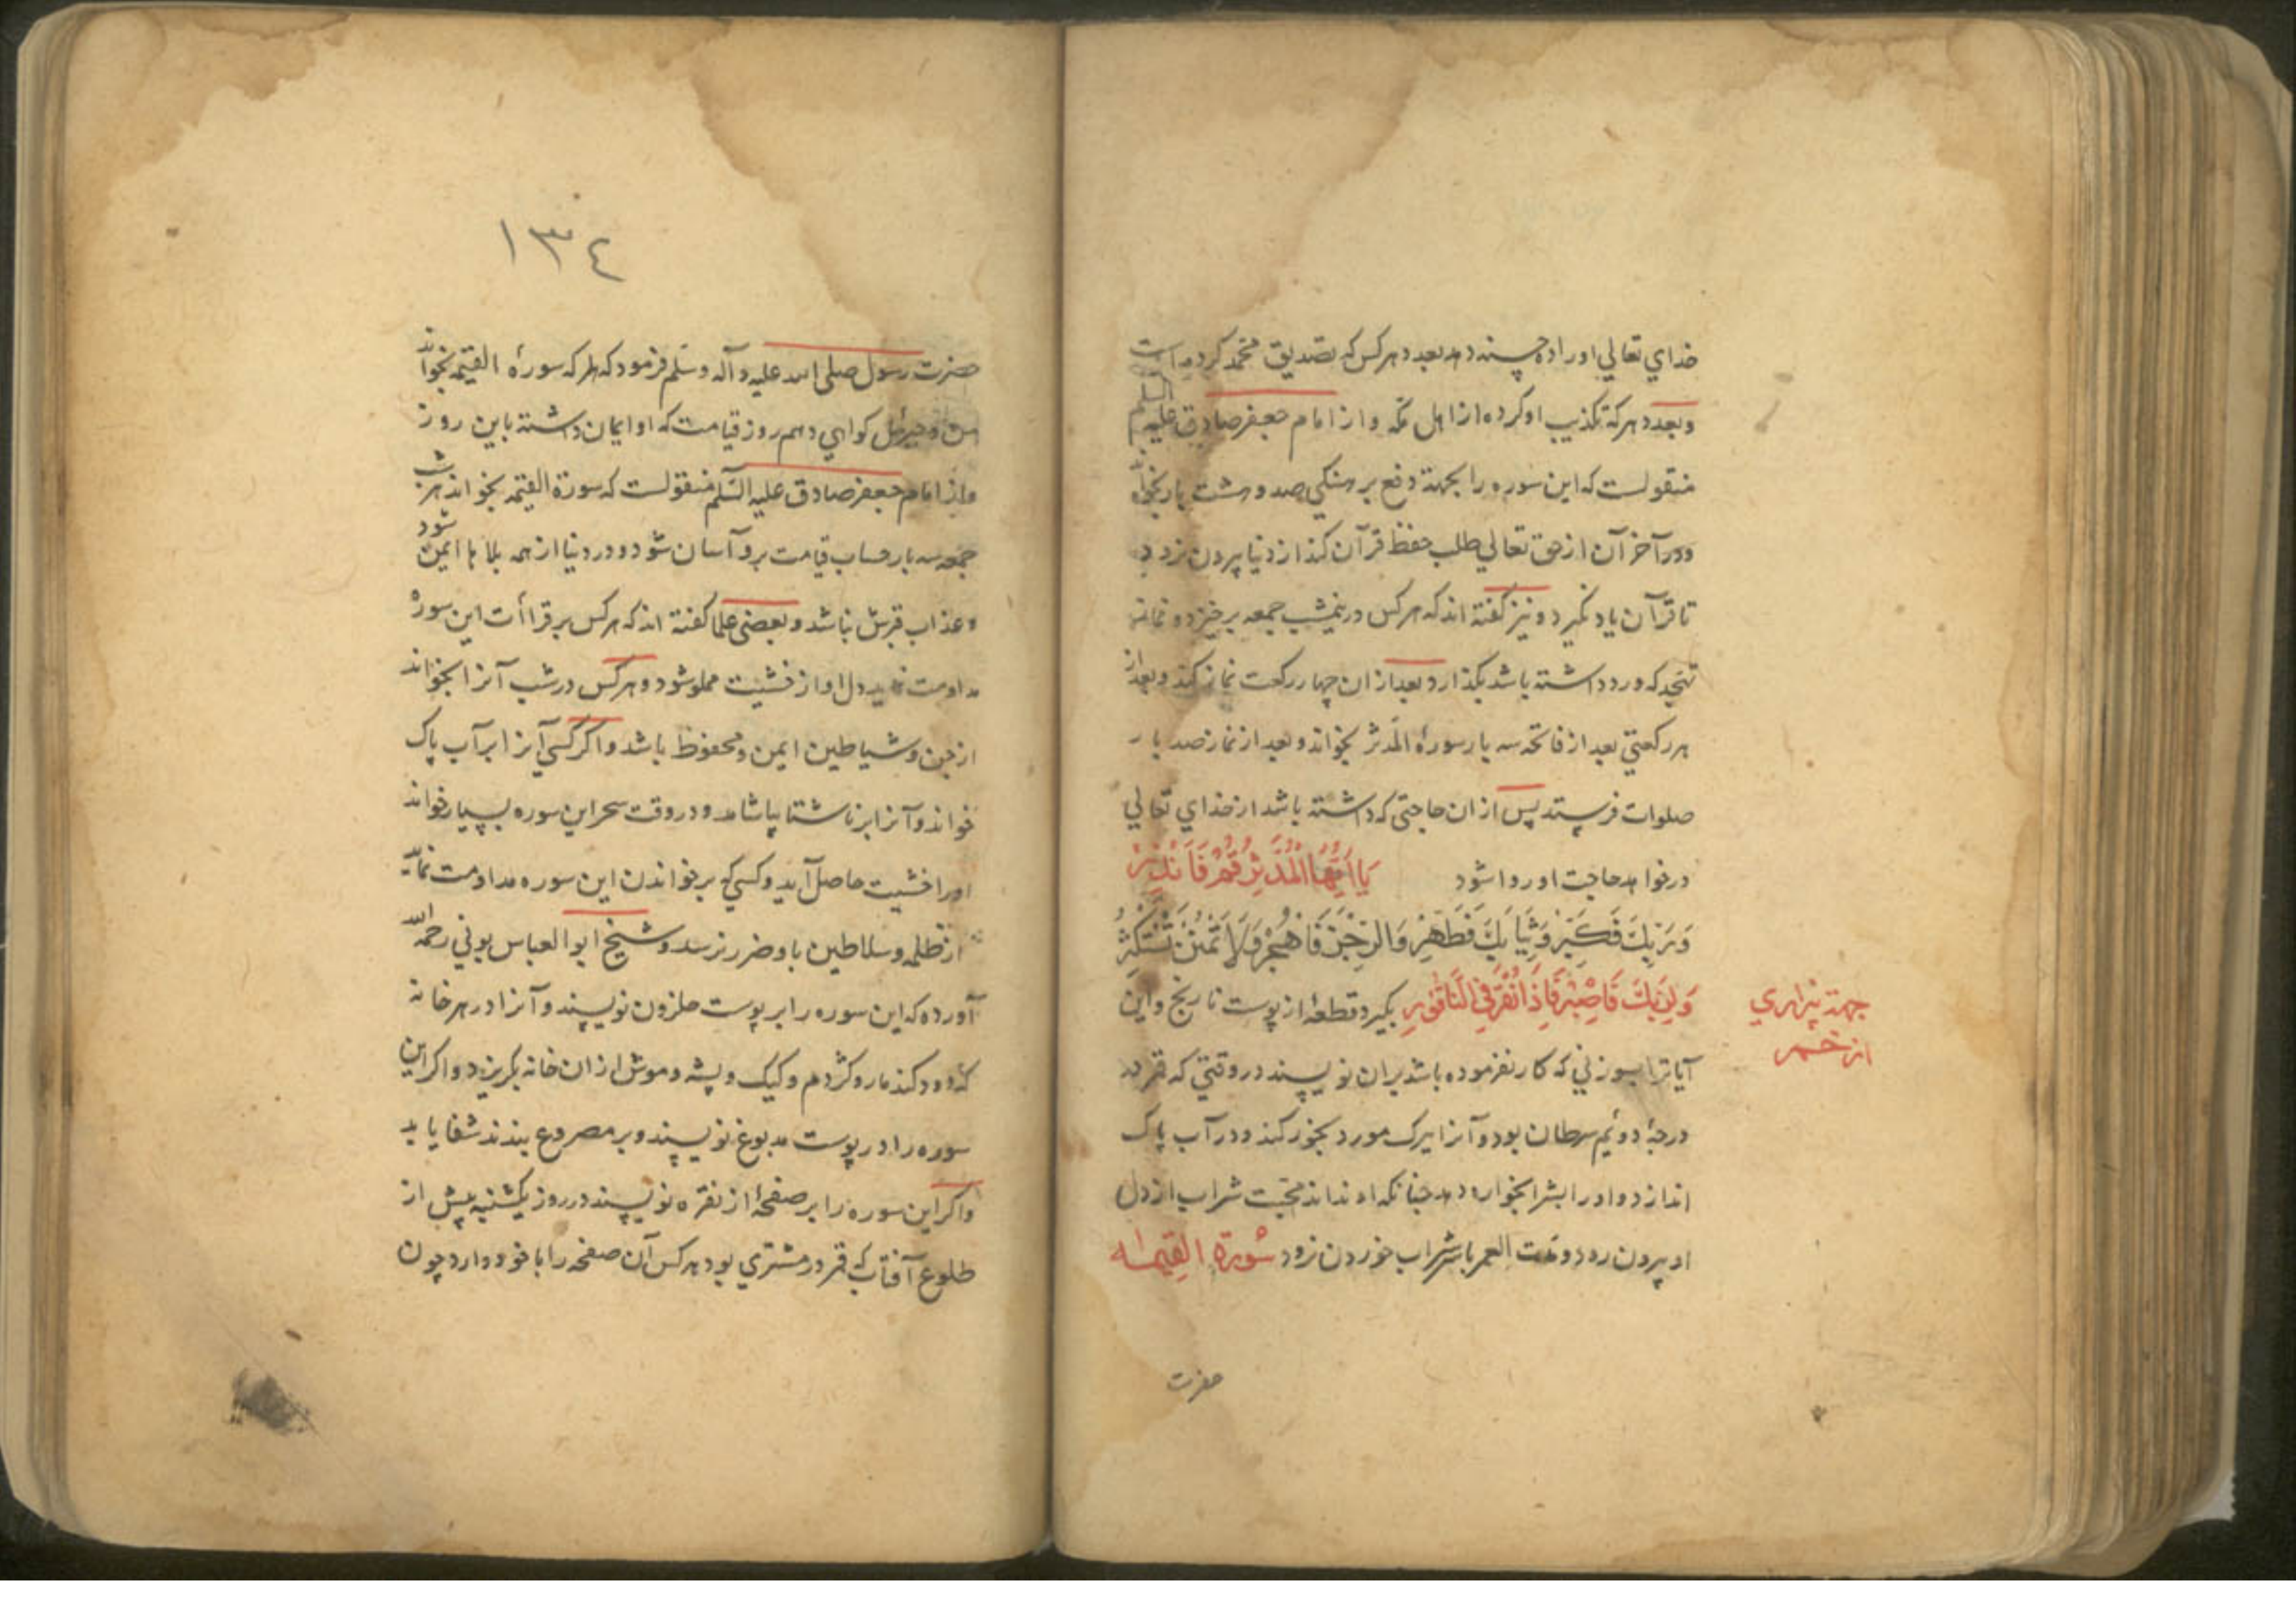 خدای تعالی اورا ده حسنه دهد بعدد هر کس که تصدیق محمد کرده است
و بعدد هر که تکذیب او کرده از اهل مکه و از امام جعفر صادق علیه السلم
منقولست که این سوره را بجهة دفع برهنگی صد و هشت بار بخواند
و در آخر آن از حق تعالی طلب حفظ قرآن کند از دنیا بیرون نرود
تا قرآن یاد نگیرد و نیز گفته اند که هر کس در نیمشب جمعه برخیزد و نماز
تهجد که ورد داشته باشد بگذارد و بعد از ان چهار رکعت نماز کند و بعد از
هر رکعتی بعد از فاتحه سه بار سورهٔ المدثر بخواند و بعد از نماز صد بار
صلوات فرستد پس از ان حاجتی که داشته باشد از خدای تعالی
درخواهد حاجت او روا شود یَا اَیُّهَا الْمُدَّثِّرُ قُمْ فَاَنْذِرْ
وَرَبَّكَ فَكَبِّرْ وَثِیَابَكَ فَطَهِّرْ وَالرُّجْزَ فَاهْجُرْ وَلَا تَمْنُنْ تَسْتَكْثِرُ
وَلِرَبِّكَ فَاصْبِرْ فَاِذَا نُقِرَ فِی النَّاقُورِ بگیرد قطعهٔ از پوست نارنج و این
جهة بیزاری
از خمر
آیاترا بسوزنی که کار نفرموده باشد بران نویسند در وقتی که قمر در
درجهٔ دوئم سرطان بود و آنرا ببرک مورد بخور کند و در آب پاک
اندازد و اورا بشرابخواره دهد چنانکه او نداند محبت شراب از دل
او بیرون رود و مدت العمر باسر شراب خوردن نرود سُورَةِ القِیمَه
حضرت
١٣٤
حضرت رسول صلی الله علیه و آله وسلم فرمود که هر که سورهٔ القیمه بخواند
من و جبرئیل کواهی دهیم روز قیامت که او ایمان داشته باین روز
و از امام جعفر صادق علیه السلم منقولست که سورة القیمه بخواند هر شب
جمعه سه بار حساب قیامت برو آسان شود و در دنیا از همه بلاها ایمن شود
و عذاب قبرش نباشد و بعضی علما گفته اند که هر کس بر قراأت این سوره
مداومت نماید دل او از خشیت مملو شود و هر کس در شب آنرا بخواند
از جن و شیاطین ایمن و محفوظ باشد و اگر کسی آنرا بر آب پاک
خواند و آنرا بر ناشتا بیاشامد و در وقت سحر این سوره بسیار خواند
اورا خشیت حاصل آید و کسی که بر خواندن این سوره مداومت نماید
از ظلمه و سلاطین باو ضرر نرسد و شیخ ابو العباس بونی رحمه الله
آورده که این سوره را بر پوست حلزون نویسند و آنرا در هر خانه
که دود کند مار و کژدم و کیک و پشه و موش از ان خانه بگریزد و اکر این
سوره را در پوست مدبوغ نویسند و بر مصروع بندند شفا یابد
و اکر این سوره را بر صفحهٔ از نقره نویسند در روز یکشنبه پیش از
طلوع آفتاب که قمر در مشتری بود هر کس آن صفحه را با خود دارد چون